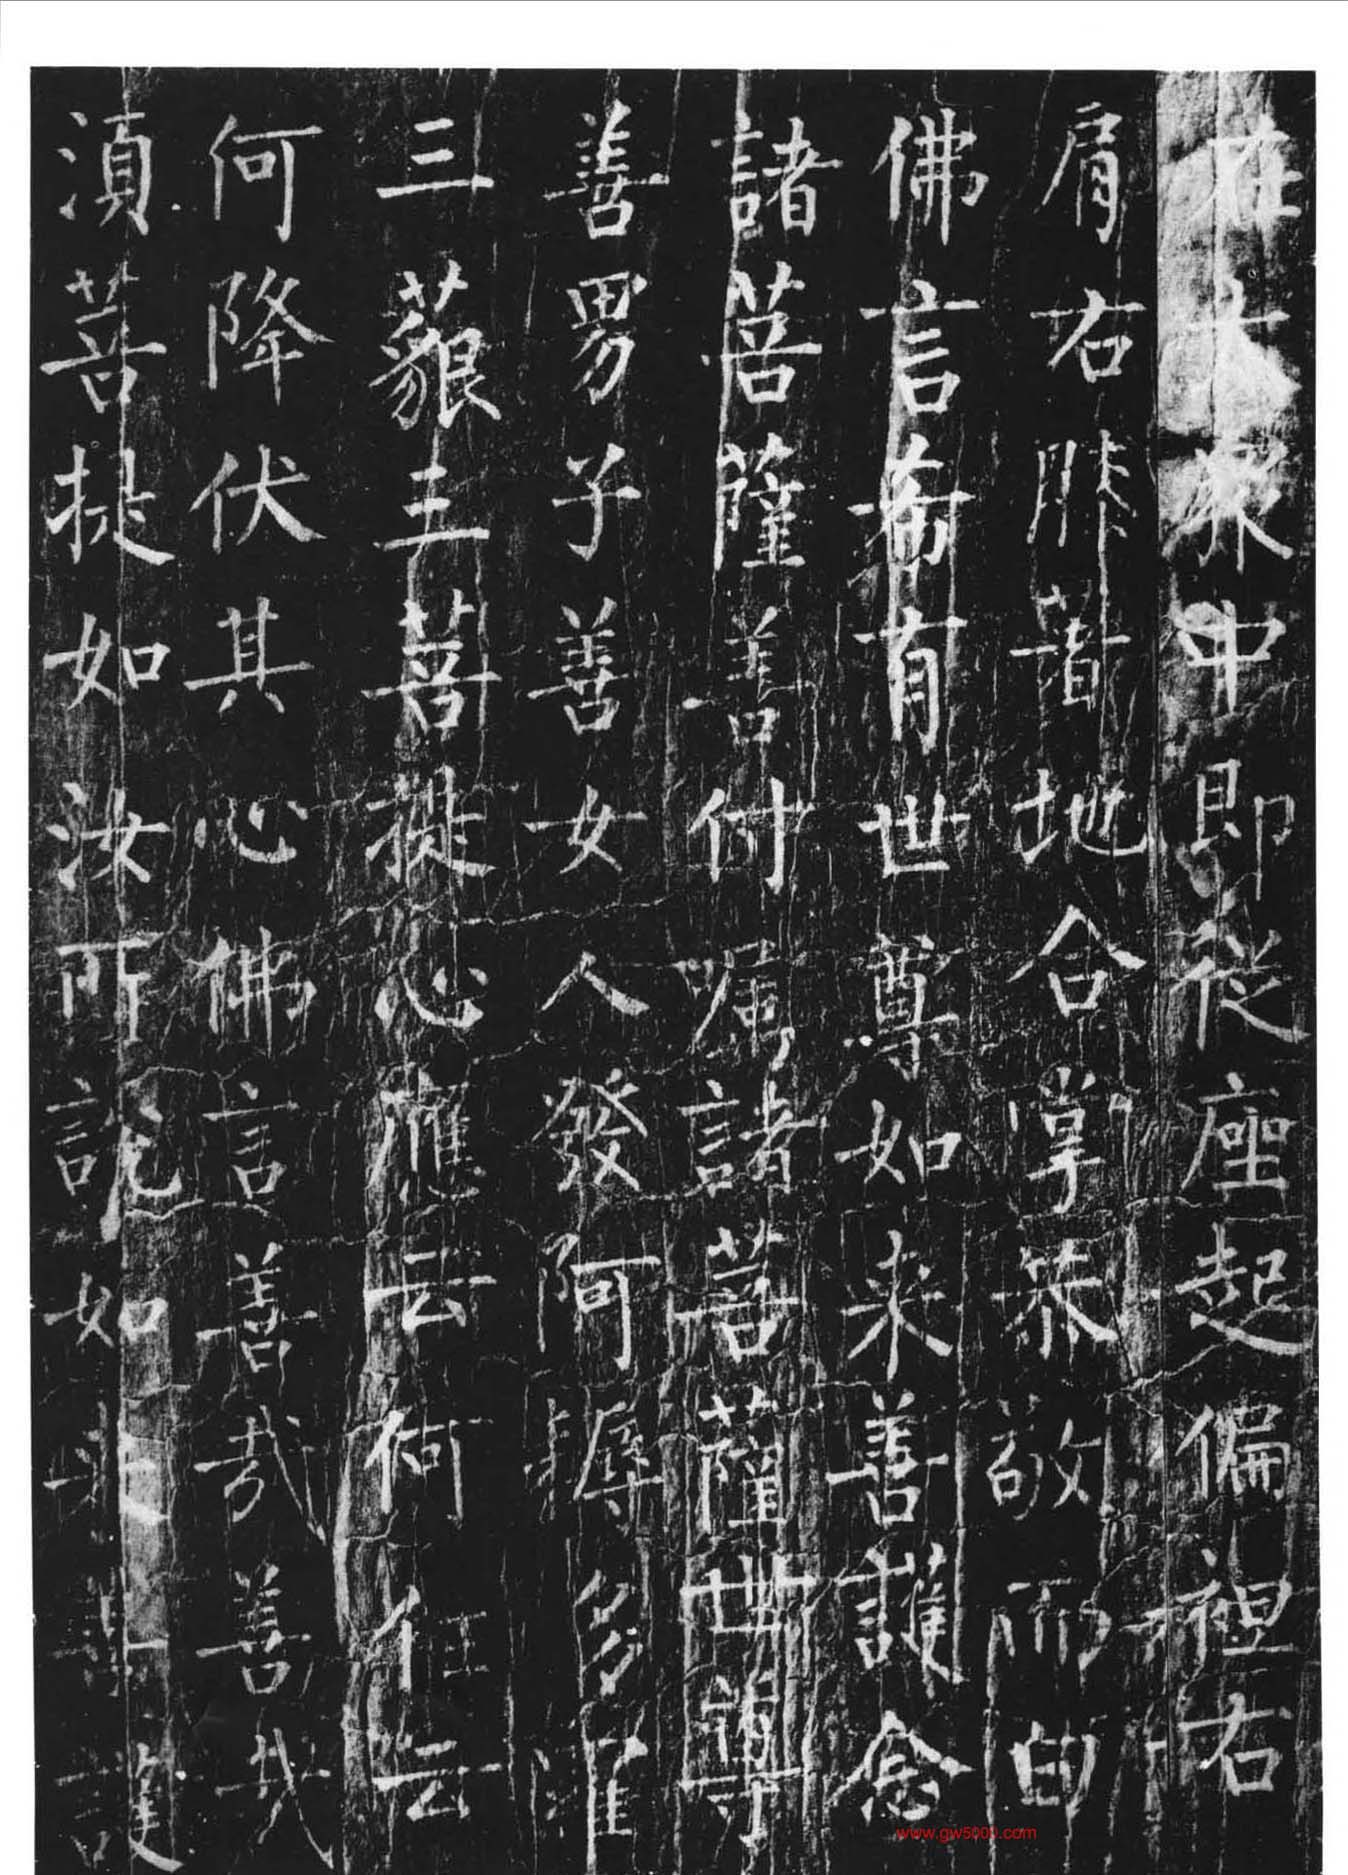 在大衆中即從座起偏袒右
肩右膝著地合掌恭敬而白
佛言希有世尊如来善護念
諸菩薩善付囑諸菩薩世尊
善男子善女人發阿耨多羅
三藐三菩提心應云何住云
何降伏其心佛言善哉善哉
湏菩提如汝所說如来善護
www.gw5000.com